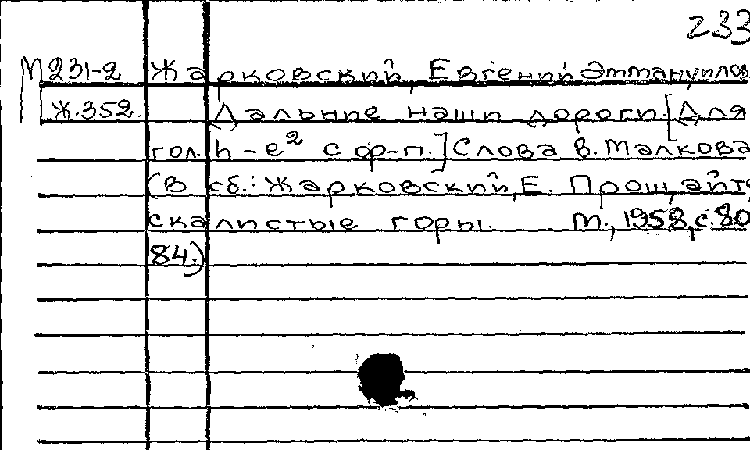 233
М231-2 Жарковский, Евгений Эммануилов
Ж.352. Дальние наши дороги. [Для
гол. h - e² с ф-п.] Слова В. Малкова
(В сб.: Жарковский, Е. Прощайте,
скалистые горы. М., 1958, с. 80
84.)